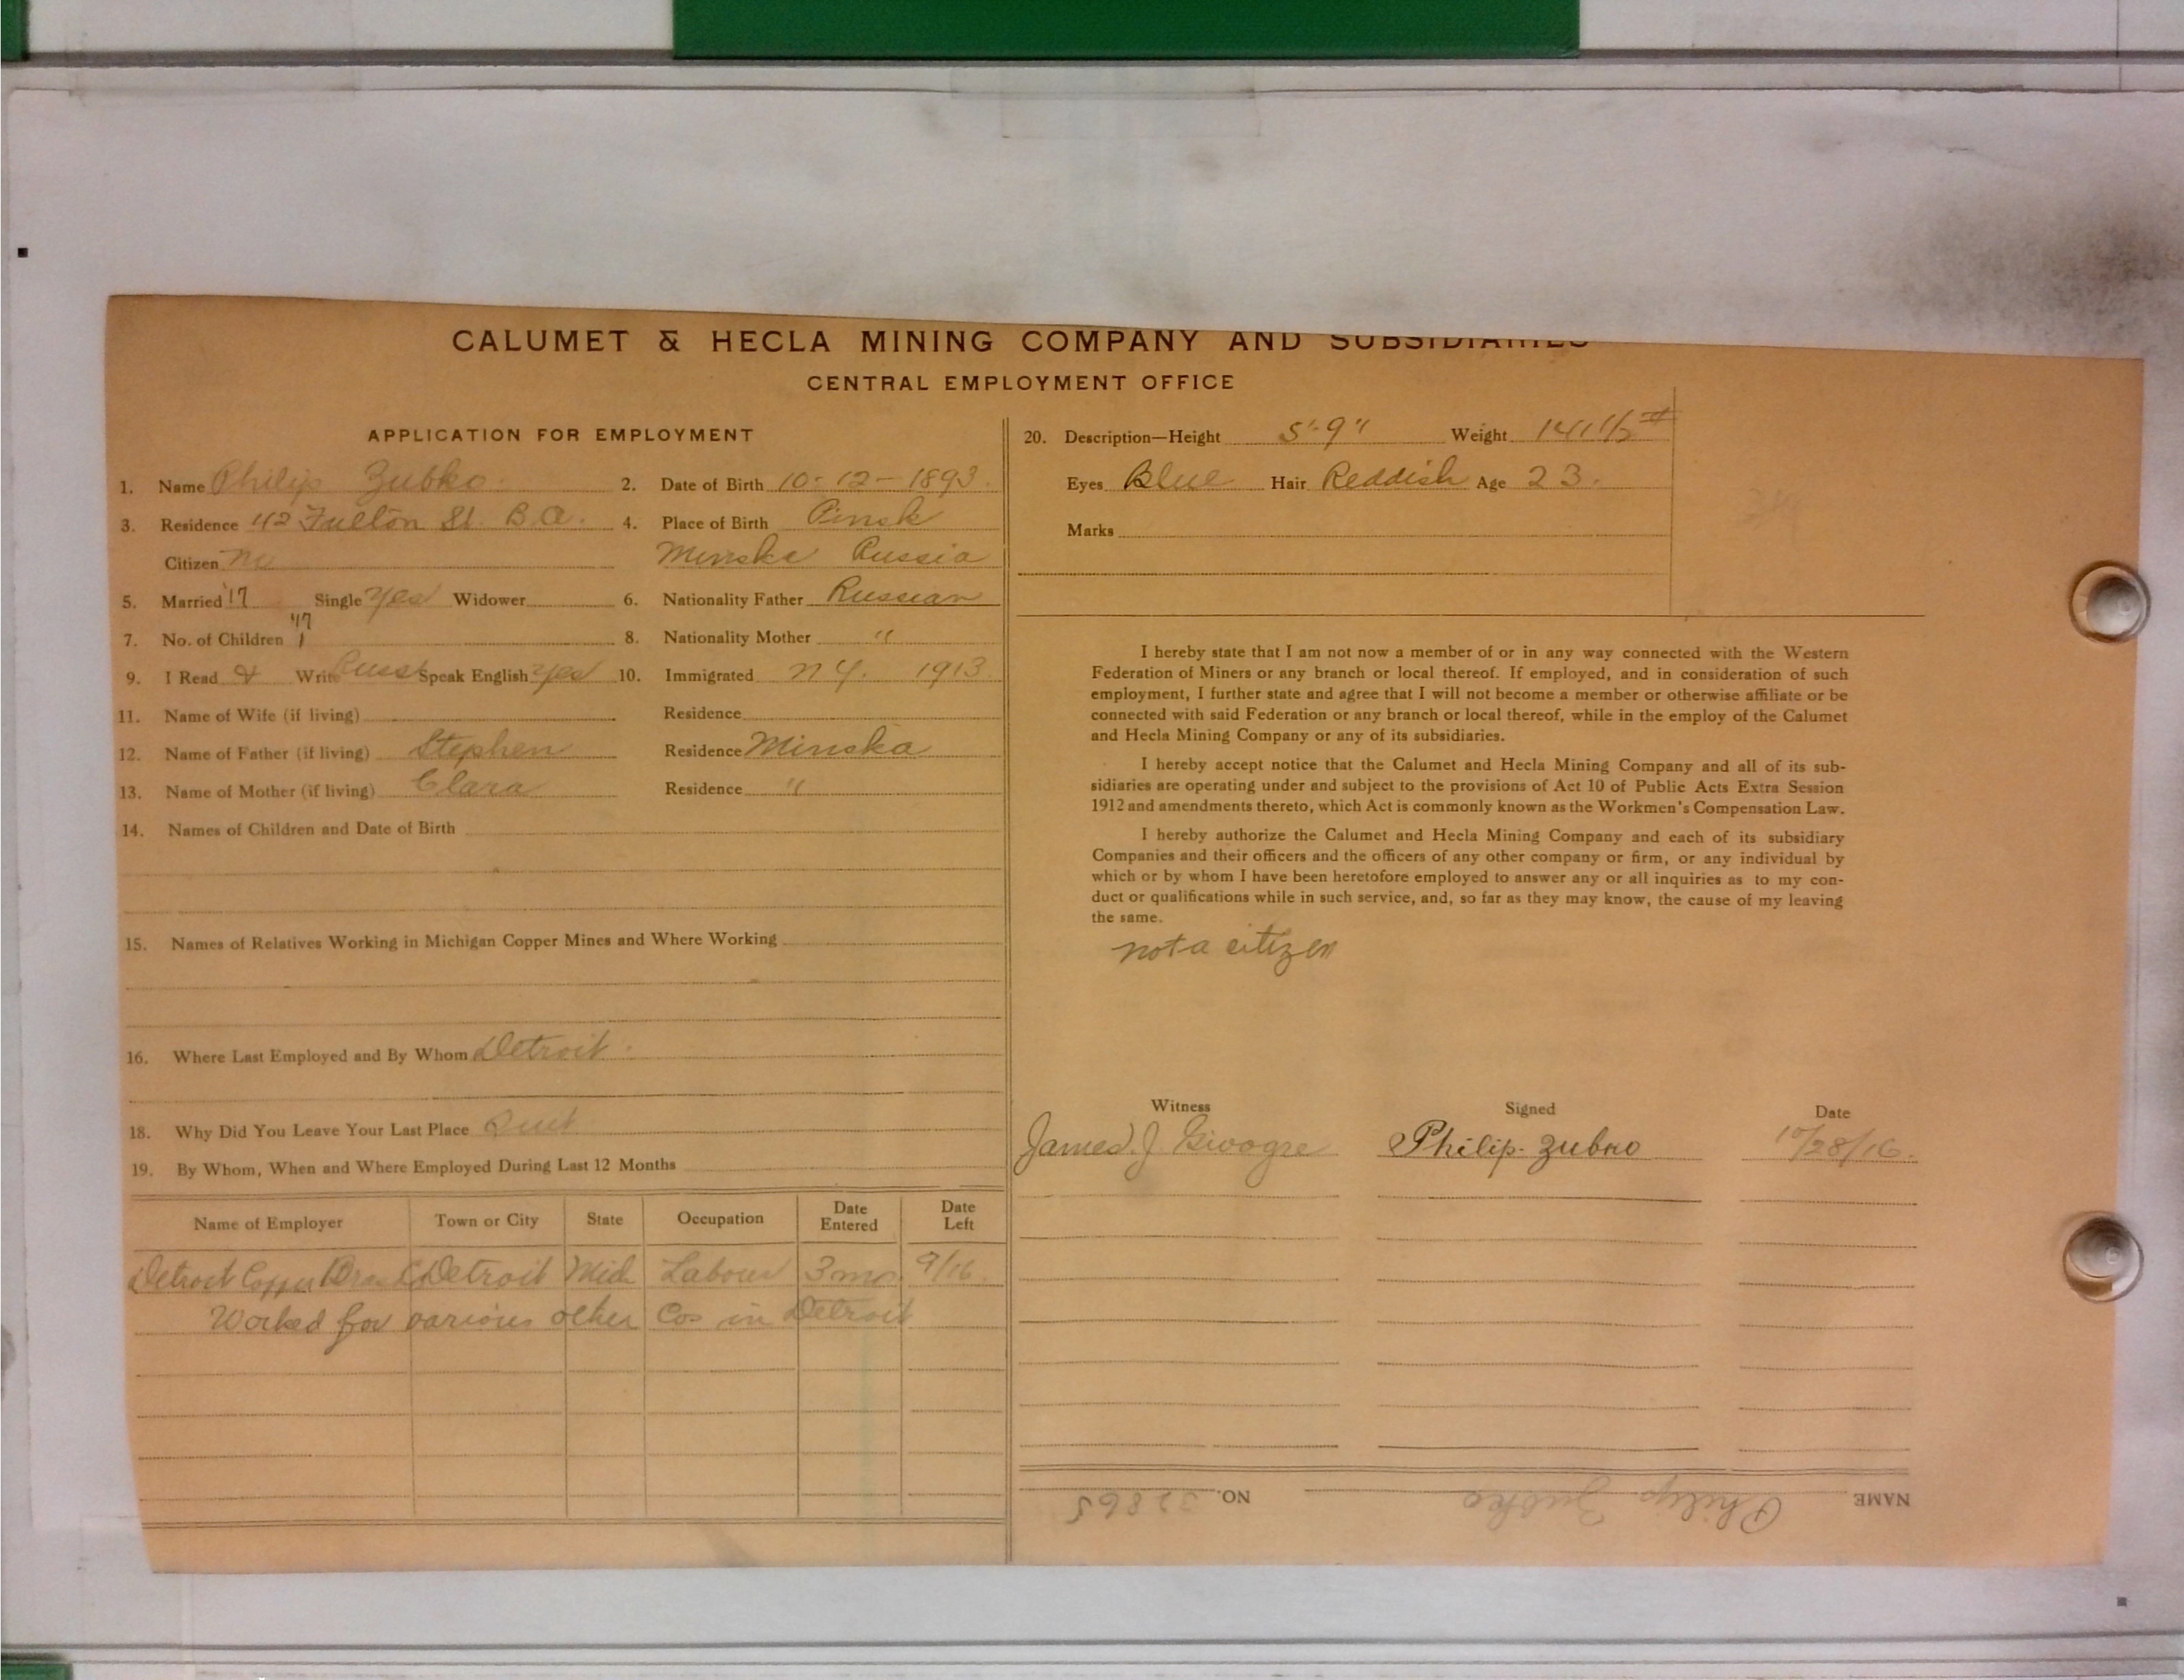 CALUMET & HECLA MINING COMPANY AND SUBSIDIARIES
CENTRAL EMPLOYMENT OFFICE
APPLICATION FOR EMPLOYMENT
1. Name Philip Zubko 2. Date of Birth 10-12-1893
3. Residence 42 Fulton St. B.A. 4. Place of Birth Pinsk
Citizen no Minska Russia
5. Married '17 Single yes Widower 6. Nationality Father Russian
'17
7. No. of Children 1 8. Nationality Mother "
9. I Read & Write Russ Speak English yes 10. Immigrated N.Y. 1913
11. Name of Wife (if living) Residence
12. Name of Father (if living) Stephen Residence Minska
13. Name of Mother (if living) Clara Residence "
14. Names of Children and Date of Birth
15. Names of Relatives Working in Michigan Copper Mines and Where Working
16. Where Last Employed and By Whom Detroit
18. Why Did You Leave Your Last Place Quit
19. By Whom, When and Where Employed During Last 12 Months
Name of Employer Town or City State Occupation Date Entered Date Left
Detroit Copper Brass Detroit Mich Labour 3 mo. 9/16
Worked for various other Cos in Detroit
20. Description—Height 5'-9" Weight
Eyes Blue Hair Reddish Age 23.
Marks
I hereby state that I am not now a member of or in any way connected with the Western
Federation of Miners or any branch or local thereof. If employed, and in consideration of such
employment, I further state and agree that I will not become a member or otherwise affiliate or be
connected with said Federation or any branch or local thereof, while in the employ of the Calumet
and Hecla Mining Company or any of its subsidiaries.
I hereby accept notice that the Calumet and Hecla Mining Company and all of its sub-
sidiaries are operating under and subject to the provisions of Act 10 of Public Acts Extra Session
1912 and amendments thereto, which Act is commonly known as the Workmen's Compensation Law.
I hereby authorize the Calumet and Hecla Mining Company and each of its subsidiary
Companies and their officers and the officers of any other company or firm, or any individual by
which or by whom I have been heretofore employed to answer any or all inquiries as to my con-
duct or qualifications while in such service, and, so far as they may know, the cause of my leaving
the same.
not a citizen
Witness Signed Date
James J. Philip Zubko 10/28/16.
NAME Philip Zubko NO. 32865